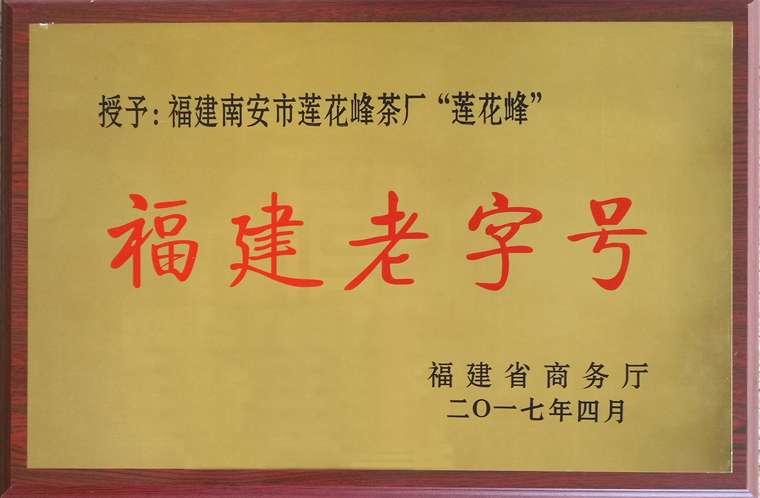 授予：福建南安市莲花峰茶厂“莲花峰”
福建老字号
福建省商务厅
二〇一七年四月